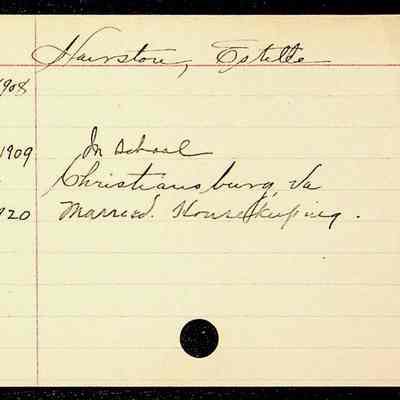 Hairston, Estelle
1908
1909 In school
Christiansburg, Va
1920 Married. Housekeeping.